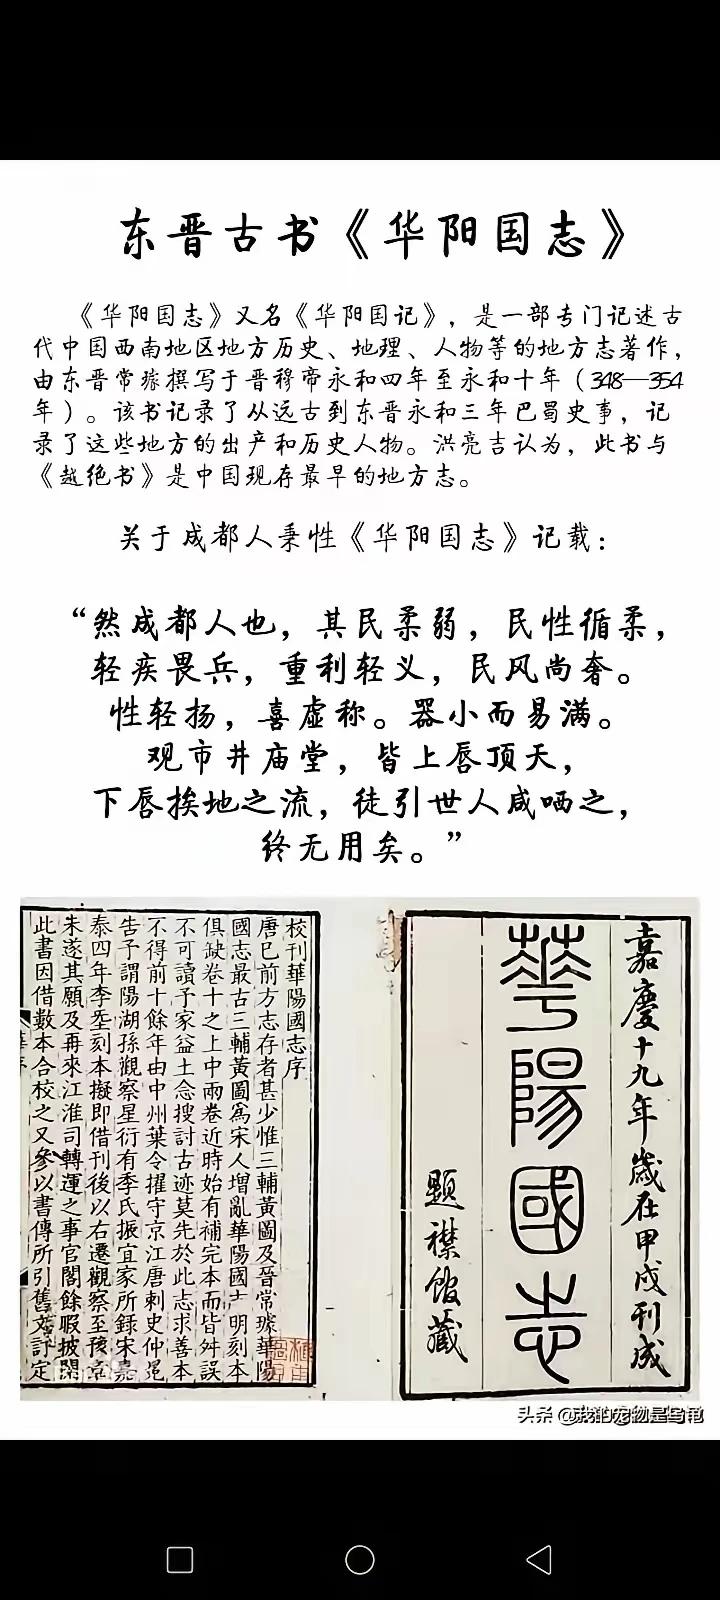 东晋古书《华阳国志》
《华阳国志》又名《华阳国记》，是一部专门记述古
代中国西南地区地方历史、地理、人物等的地方志著作，
由东晋常璩撰写于晋穆帝永和四年至永和十年（348—354
年）。该书记录了从远古到东晋永和三年巴蜀史事，记
录了这些地方的出产和历史人物。洪亮吉认为，此书与
《越绝书》是中国现存最早的地方志。
关于成都人秉性《华阳国志》记载：
“然成都人也，其民柔弱，民性循柔，
轻疾畏兵，重利轻义，民风尚奢。
性轻扬，喜虚称。器小而易满。
观市井庙堂，皆上唇顶天，
下唇挨地之流，徒引世人咸哂之，
终无用矣。”
嘉慶十九年歲在甲戌刊成
華陽國志
題襟館藏
校刊華陽國志序
唐已前方志存者甚少惟三輔黃圖及晉常璩華陽
國志最古三輔黃圖為宋人增亂華陽國志明刻本
俱缺卷十之上中兩卷近時始有補完本而皆舛誤
不可讀予家益土念搜討古迹莫先於此志求善本
不得前十餘年由中州葉令擢守京江唐刺史仲冕
告予謂陽湖孫觀察星衍有季氏振宜家所錄宋嘉
泰四年李𡊮刻本擬即借刊後以右遷觀察至孩京
朱遂其願及再來江淮司轉運之事官閣餘暇披閱
此書因借數本合校之又參以書傳所引舊文訂定
头条 @我的宠物是乌龟